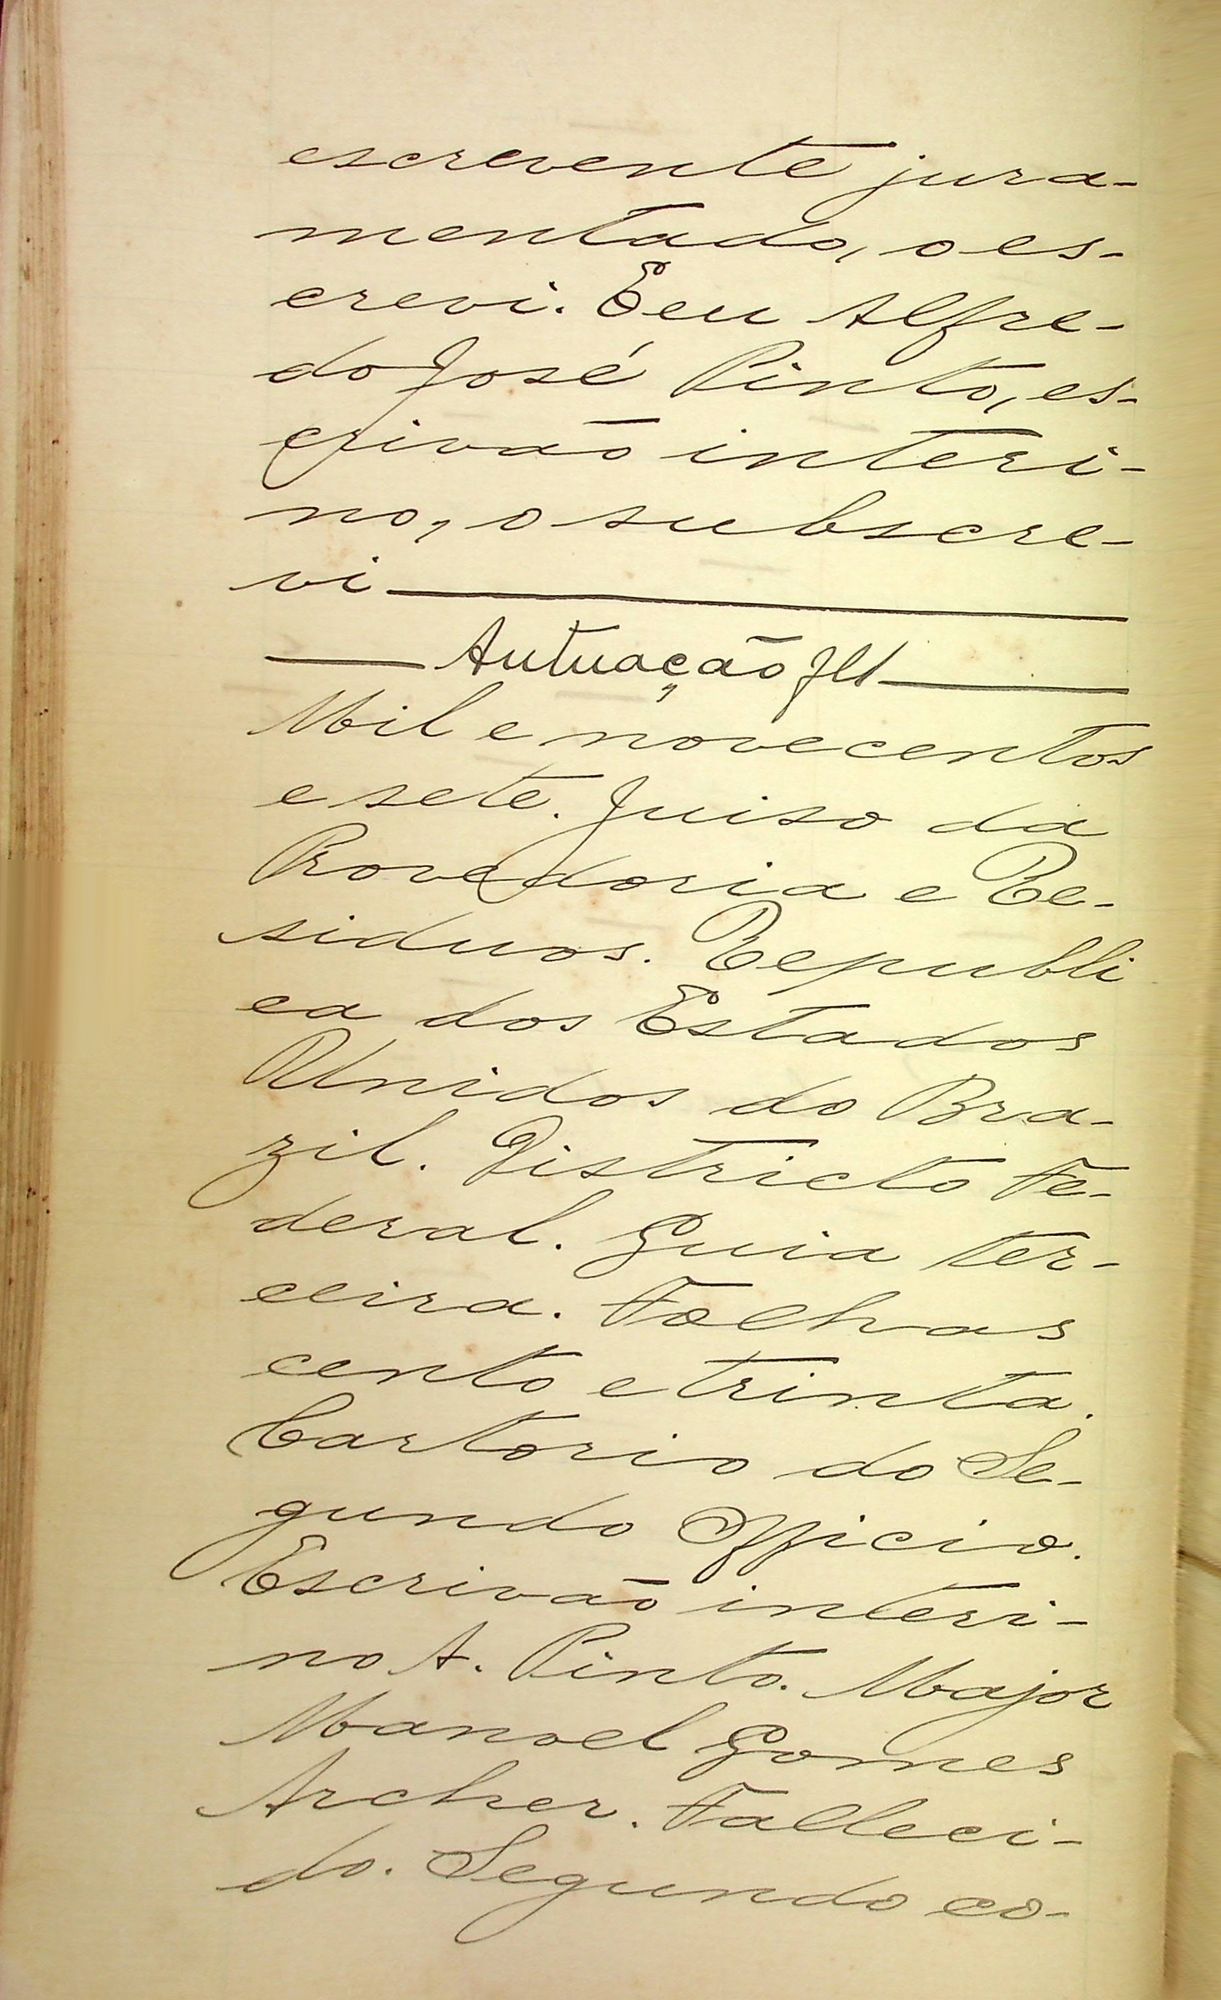 escrevente jura-
mentado, o es-
crevi. E eu Alfre-
do José Pinto, es-
crivão interi-
no, o subscre-
vi
Autuação fl 1
Mil e novecentos
e sete. Juiso da
Provedoria e Re-
siduos. Republi
ca dos Estados
Unidos do Bra-
zil. Districto Fe-
deral. Guia ter-
ceira. Folhas
cento e trinta.
Cartorio do Se-
gundo Officio.
Escrivão interi-
no A. Pinto. Major
Manoel Gomes
Archer. Falleci-
do. Segundo co-